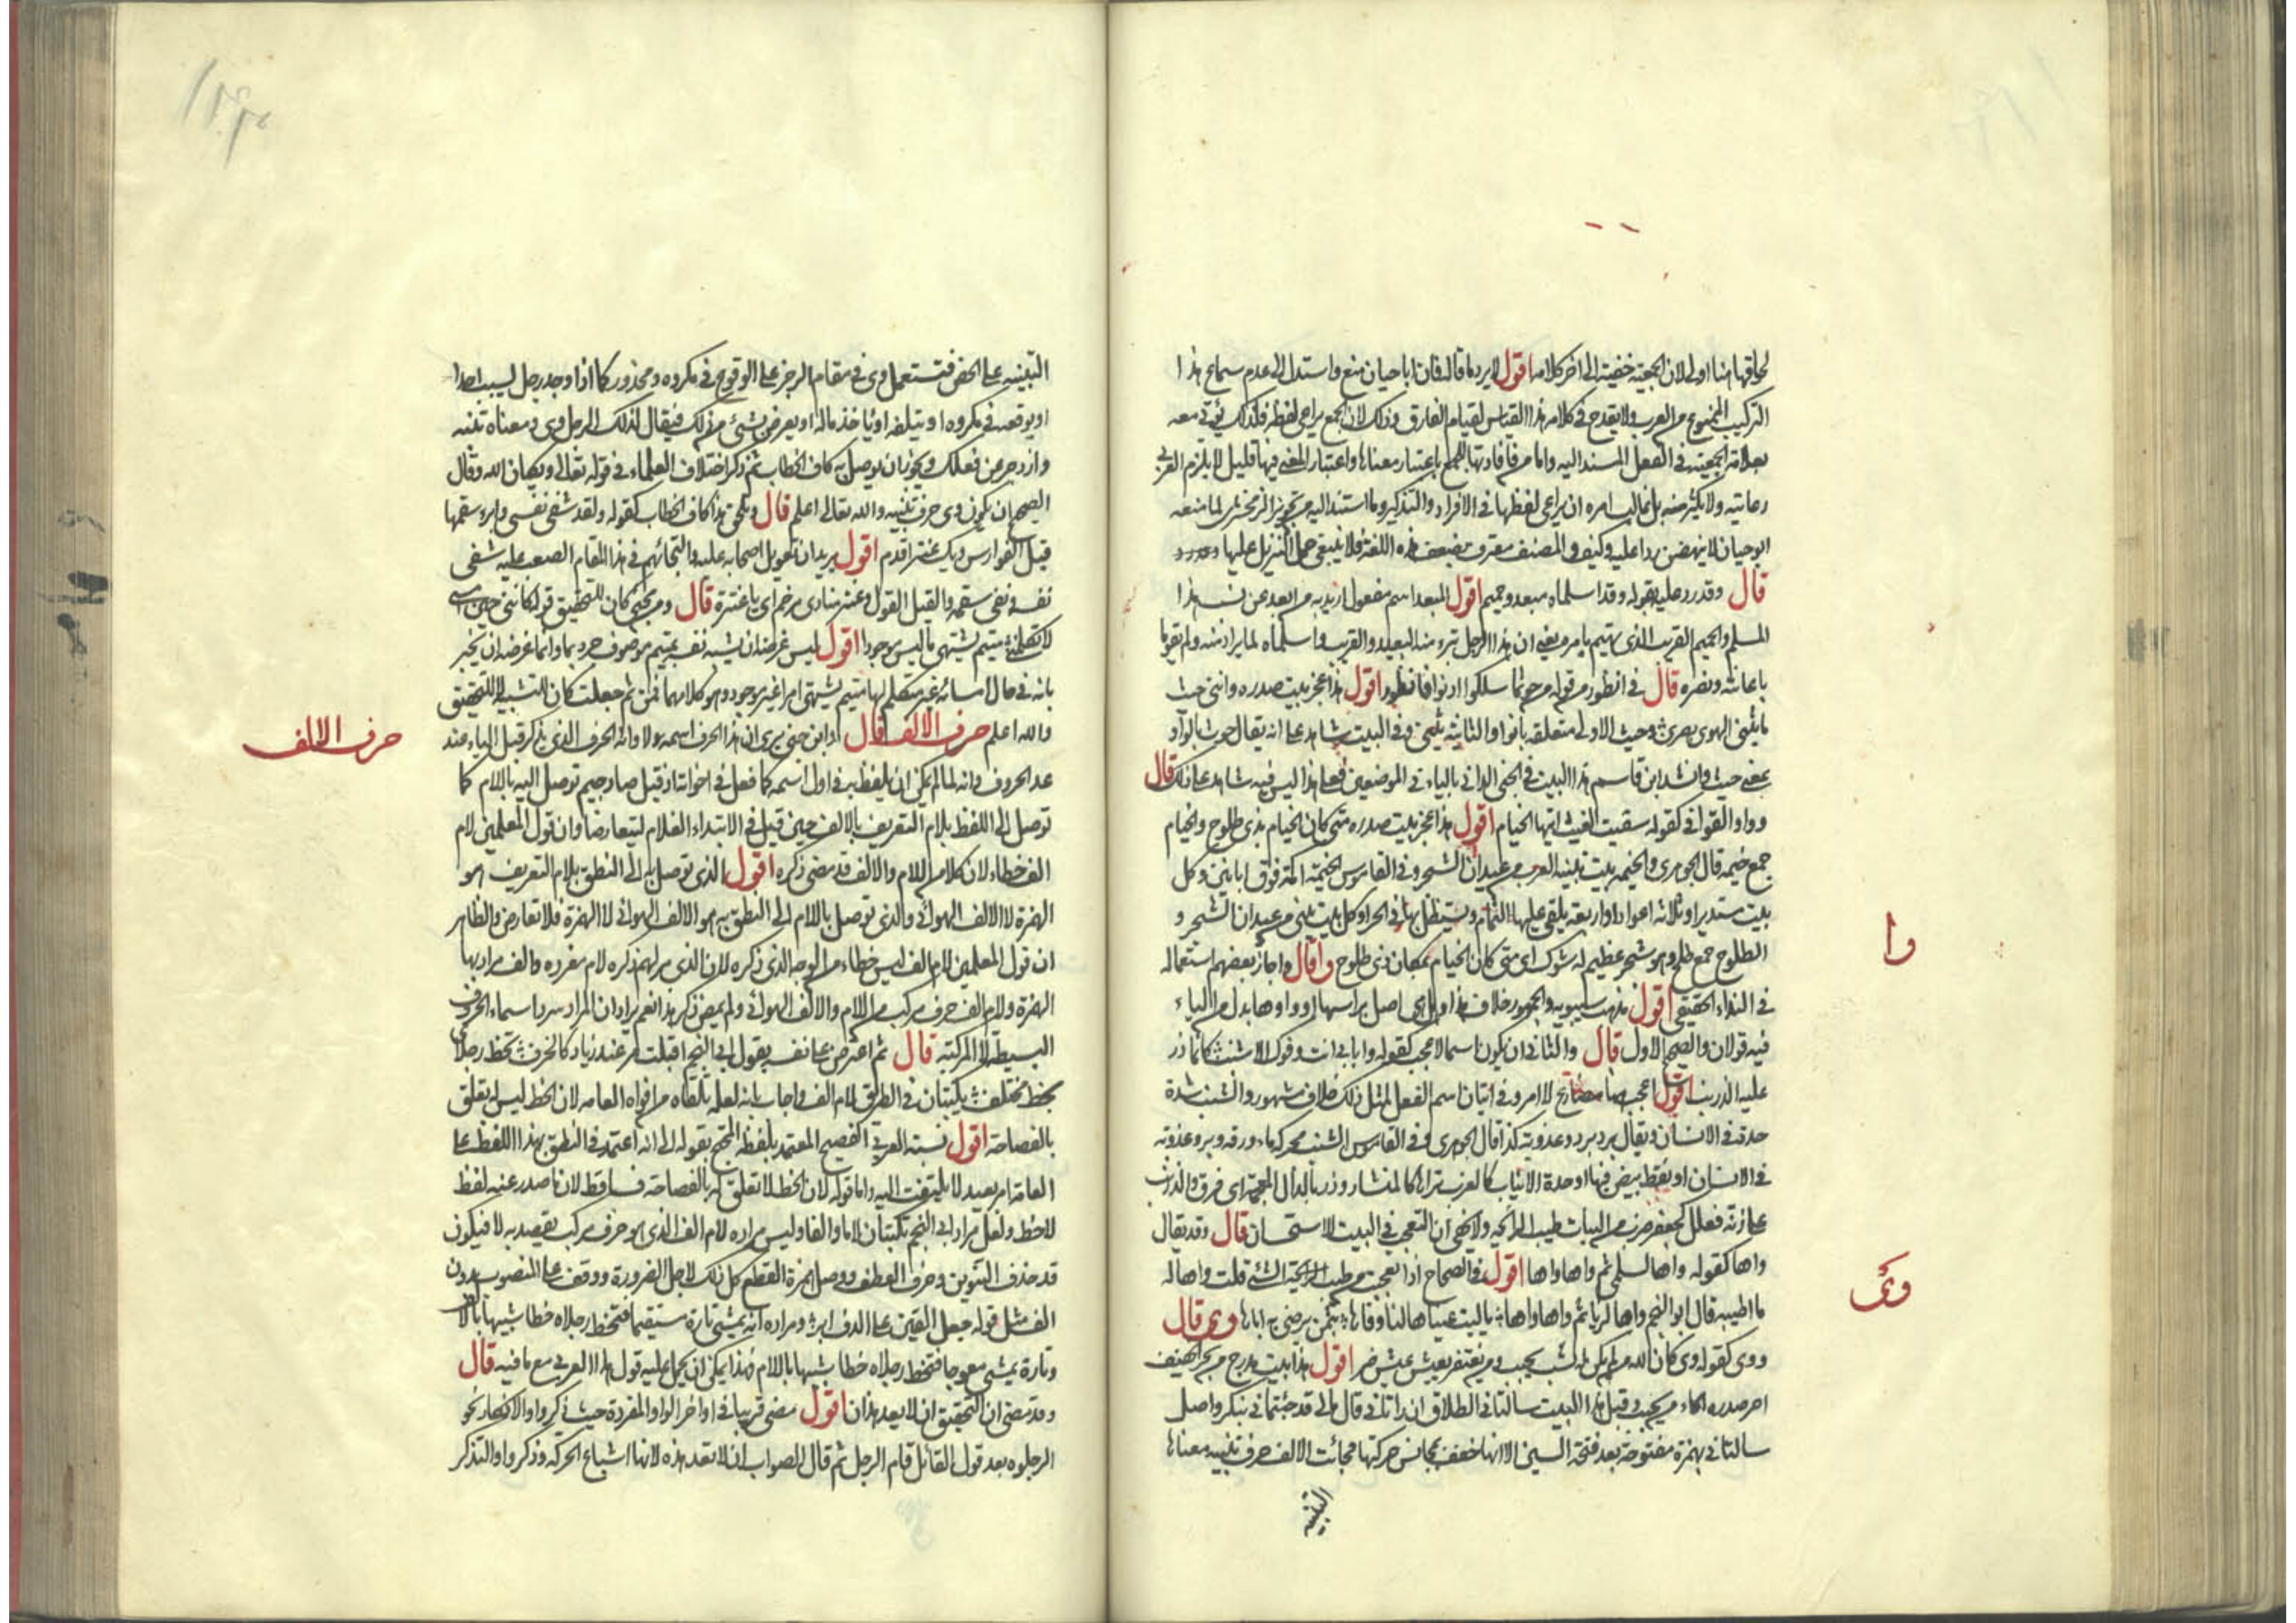 لحاقها هنا اولى لان الجمعية خفيت الى اخر كلامه اقول لا يرد ما قاله فان ابا حيان منع واستدل الى عدم سماع هذا
التركيب الممنوع من العرب ولا يقدح في كلامه هذا القياس لقيام الفارق وذلك لان الجمع يراعى لفظه فلذلك يؤتى معه
بعلامة الجمعية في الفعل المسند اليه واما من فافادتها للجمع باعتبار معناها واعتبار المعنى فيها قليل لا يلزم العربي
رعايته ولا يكثر منه بل غالب امره ان يراعى لفظها في الافراد والتذكير وما استند اليه من تجويز الزمخشري لما منعه
ابو حيان لا ينهض ردا عليه وكيف والمصنف معترف بضعف هذه اللغة فلا ينبغي حمل التنزيل عليها
قال وقد رد عليه بقوله وقد اسلماه مبعد وحميم اقول المبعد اسم مفعول اريد به من بعد عن نسب هذا
المسلم والحميم القريب الذي يهتم بامره يعني ان هذا الرجل تبرء منه البعيد والقريب واسلماه لما يراد منه ولم يقوما
باعانته ونصره قال في انظور من قوله من حوثما سلكوا ادنوا فانظور اقول هذا عجز بيت صدره وانني حيث
ما يثني الهوى بصري وحيث الاولى متعلقه بادنوا والثانية بيثني وفي البيت شاهد على انه يقال حوث بالواو
بمعنى حيث وانشد ابن قاسم هذا البيت في الجنى الداني بالياء في الموضعين فعلى هذا ليس فيه شاهد على ذلك قال
وواو القوافي كقوله سقيت الغيث ايتها الخيام اقول هذا عجز بيت صدره متى كان الخيام بذي طلوح والخيام
جمع خيمه قال الجوهري والخيمه بيت تبنيه العرب من عيدان الشجر وفي القاموس الخيمة اكمة فوق ابانين وكل
بيت مستدير او ثلاثة اعواد او اربعة يلقى عليها الثمام ويستظل بها في الحر او كل بيت يبنى من عيدان الشجر و
الطلوح جمع طلح وهو شجر عظيم له شوك اي متى كان الخيام بمكان ذي طلوح وا قال واجاز بعضهم استعماله
في النداء الحقيقي اقول مذهب سيبويه والجمهور خلاف هذا وهل هي اصل براسها او واوها بدل من الياء
فيه قولان والصحيح الاول قال والثاني ان يكون اسما لاعجب كقوله وا بابي انت وفوك الاشنب كانما ذر
عليه الزرنب اقول اعجب مضارع لا امر وفي اتيان اسم الفعل لمثل ذلك خلاف مشهور والشنب شدة
حدة في الاسنان ويقال برد وعذوبة كذا قال الجوهري وفي القاموس الشنب محركه ماء ورقة وبرد وعذوبة
في الاسنان او نقط بيض فيها او حدة الانياب كالغرب تراها كالمنشار وذر بالذال المعجمة اي فرق والزرنب
على زنة فعلل كجعفر ضرب من النبات طيب الرائحه ولا يخفى ان التعجب في البيت للاستحسان قال وقد يقال
واها كقوله واها لسلمى ثم واها واها اقول في الصحاح اذا تعجبت من طيب الرائحة الشئ قلت واها له
ما اطيبه قال ابو النجم واها لريا ثم واها واها يا ليت عيناها لنا وفاها بثمن يرضى به اباها وي قال
ووى كقوله وى كان الله من يكن له نشب يحبب ومن يفتقر يعش عيش ضر اقول هذا بيت مدرج من بحر الخفيف
اخر صدره الحاء من يحبب وقبل هذا البيت سالتاني الطلاق ان راتاني قال مالي قد جئتماني بنكر واصل
سالتاني بهمزة مفتوحة بعد فتحة السين الا انها خففت بمجانس حركتها فجائت الالف حرف تنبيه معناها
التنبيه
وا
وى
التنبيه على الحض فتستعمل وى في مقام الزجر على الوقوع في مكروه ومحذور كما اذا وجد رجل ليسب احدا
او يوقعه في مكروه او يتلفه او ياخذ ماله او يعرض بشئ من ذلك فيقال لذلك الرجل وى ومعناه تنبه
وازدجر عن فعلك ويجوز ان يوصل به كاف الخطاب ثم ذكر اختلاف العلماء في قوله تعالى ويكان الله وقال
الصحيح ان يكون وى حرف تنبيه والله تعالى اعلم قال وتلحق هذا كاف الخطاب كقوله ولقد شفى نفسي وابرء سقمها
قيل الفوارس ويك عنتر اقدم اقول يريد ان تعويل اصحابه عليه والتجائهم في هذا المقام الصعب عليه شفى
نفسه ونفى سقمه والقيل القول وعنتر منادى مرخم اى يا عنترة قال ومن مجئ كان للتحقيق قوله كانني حين امسي
لا تكلمني متيم يشتهي ما ليس موجودا اقول ليس غرضه ان يشبه نفسه بمتيم موصوف وانما غرضه ان يخبر
بانه في حال امسائه غير متكلم لها متيم يشتهي امرا غير موجود وهو كلامها فمن ثم جعلت كان لا للتشبيه بل للتحقيق
والله اعلم حرف الالف قال ابن جني يرى ان هذا الحرف اسمه لا وانه الحرف الذي يذكر قبل الياء عند
عد الحروف وانه لما لم يمكن ان يلفظ به في اول اسمه كما فعل في اخواته اذ قيل صاد جيم توصل اليه باللام كما
توصل الى اللفظ بلام التعريف بالالف حين قيل في الابتداء الغلام ليتعارضا وان قول المعلمين لام
الف خطاء لان كلا من اللام والالف قد مضى ذكره اقول الذي توصل به الى النطق بلام التعريف هو
الهمزة لا الالف الهوائي والذي توصل باللام الى النطق به هو الالف الهوائي لا الهمزة فلا تعارض والظاهر
ان قول المعلمين لام الف ليس خطاء من الوجه الذي ذكره لان الذي مر لهم ذكره لام مفرده والف مرادبها
الهمزة ولام الف حرف مركب من اللام والالف الهوائي ولم يمض ذكر هذا نعم يراد ان المراد سرد اسماء الحروف
البسيطه لا المركبة قال ثم اعترض على نفسه بقول ابي النجم اقبلت من عند زياد كالخرف تخط رجلاي
بخط مختلف تكتبان في الطريق لام الف واجاب بانه لعله تلقاه من افواه العامه لان الخط ليس له تعلق
بالفصاحة اقول نسبة العربي الفصيح المعتمد بلفظه المحتج بقوله الى انه اعتمد في النطق بهذا اللفظ على
العامة امر بعيد لا يلتفت اليه واما قوله لان الخط لا تعلق له بالفصاحة فساقط لان ما صدر عنه لفظ
لا خط ولعل مراد ابي النجم تكتبان لاما والفا وليس مراده لام الف الذي هو حرف مركب يقصد به لا فيكون
قد حذف التنوين وحرف العطف ووصل همزة القطع كل ذلك لاجل الضرورة ووقف على المنصوب بدون
الف مثل قوله جعل القين على الدف ابر ومراده انه يمشي تارة مستقيما فتخط رجلاه خطا شبيها بالالف
وتارة يمشي معوجا فتخط رجلاه خطا شبيها باللام فهذا يمكن ان يحمل عليه قول هذا العربي مع ما فيه قال
وقد مضى ان التحقيق ان لا يعد هذان اقول مضى قريبا في اواخر الواو المفردة حيث ذكر واو الانكار نحو
الرجلوه بعد قول القائل قام الرجل ثم قال الصواب ان لا تعد هذه لانها اشباع الحركه وذكر واو التذكر
حرف الالف